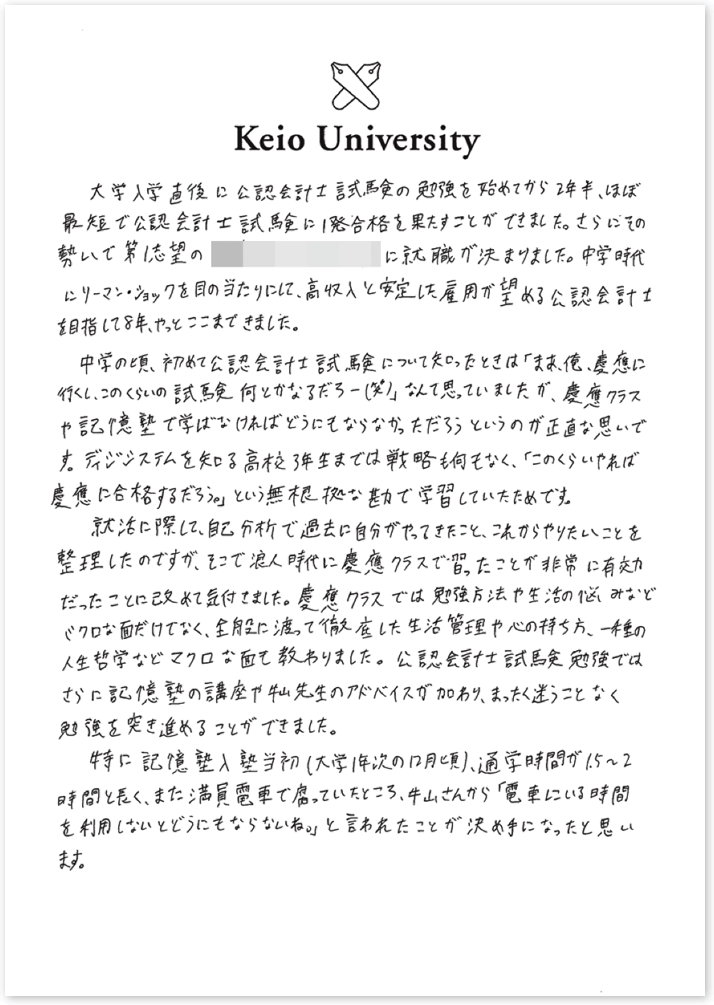 Keio University
大学入学直後に公認会計士試験の勉強を始めてから2年半、ほぼ
最短で公認会計士試験に1発合格を果たすことができました。さらにその
勢いで第1志望の に就職が決まりました。中学時代
にリーマン・ショックを目の当たりにして、高収入と安定した雇用が望める公認会計士
を目指して8年、やっとここまできました。
中学の頃、初めて公認会計士試験について知ったときは「まあ、俺、慶應に
行くし、このくらいの試験何とかなるだろー(笑)」なんて思っていましたが、慶應クラス
や記憶塾で学ばなければどうにもならなかっただろうというのが正直な思いで
す。ディジシステムを知る高校3年生までは戦略も何もなく、「このくらいやれば
慶應に合格するだろう。」という無根拠な勘で学習していたためです。
就活に際して、自己分析で過去に自分がやってきたこと、これからやりたいことを
整理したのですが、そこで浪人時代に慶應クラスで習ったことが非常に有効
だったことに改めて気付きました。慶應クラスでは勉強方法や生活の悩みなど
ミクロな面だけでなく、全般に渡って徹底した生活管理や心の持ち方、一種の
人生哲学などマクロな面も教わりました。公認会計士試験勉強では
さらに記憶塾の講座や牛山先生のアドバイスが加わり、まったく迷うことなく
勉強を突き進めることができました。
特に記憶塾入塾当初(大学1年次の12月頃)、通学時間が1.5〜2
時間と長く、また満員電車で腐っていたところ、牛山さんから「電車にいる時間
を利用しないとどうにもならないね。」と言われたことが決め手になったと思い
ます。